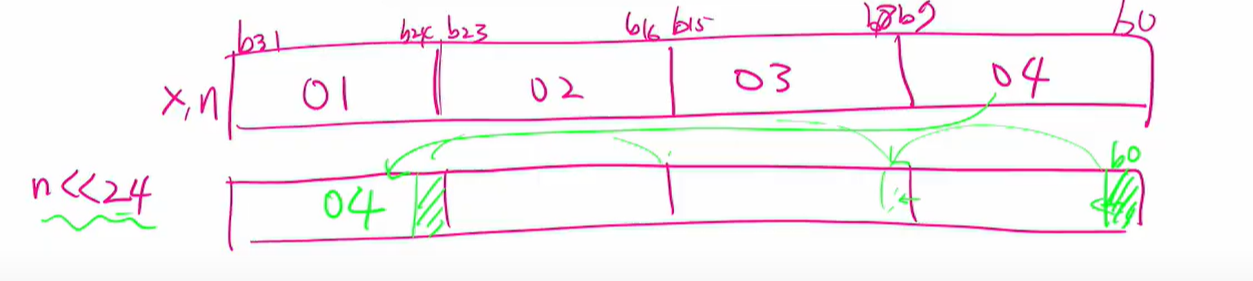 b31 b24 b23 b16 b15 b8 b9 b0
x,n 01 02 03 04
b0
n<<24 04